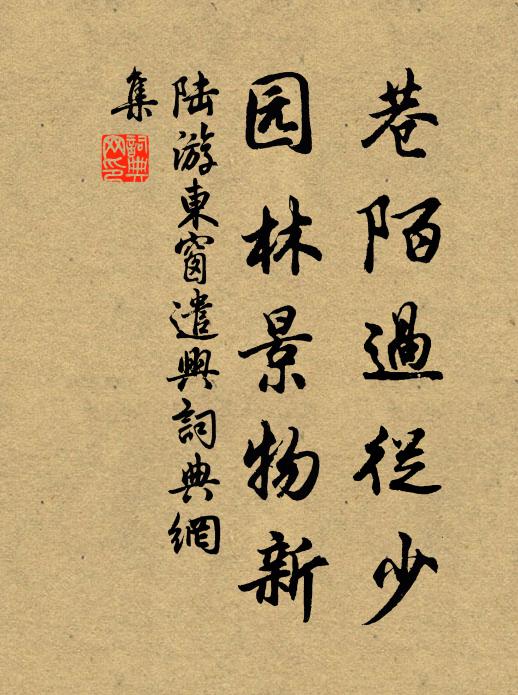 巷陌過從少
园林景物新
陆游東窗遣興詞典網
集
詞典
网印